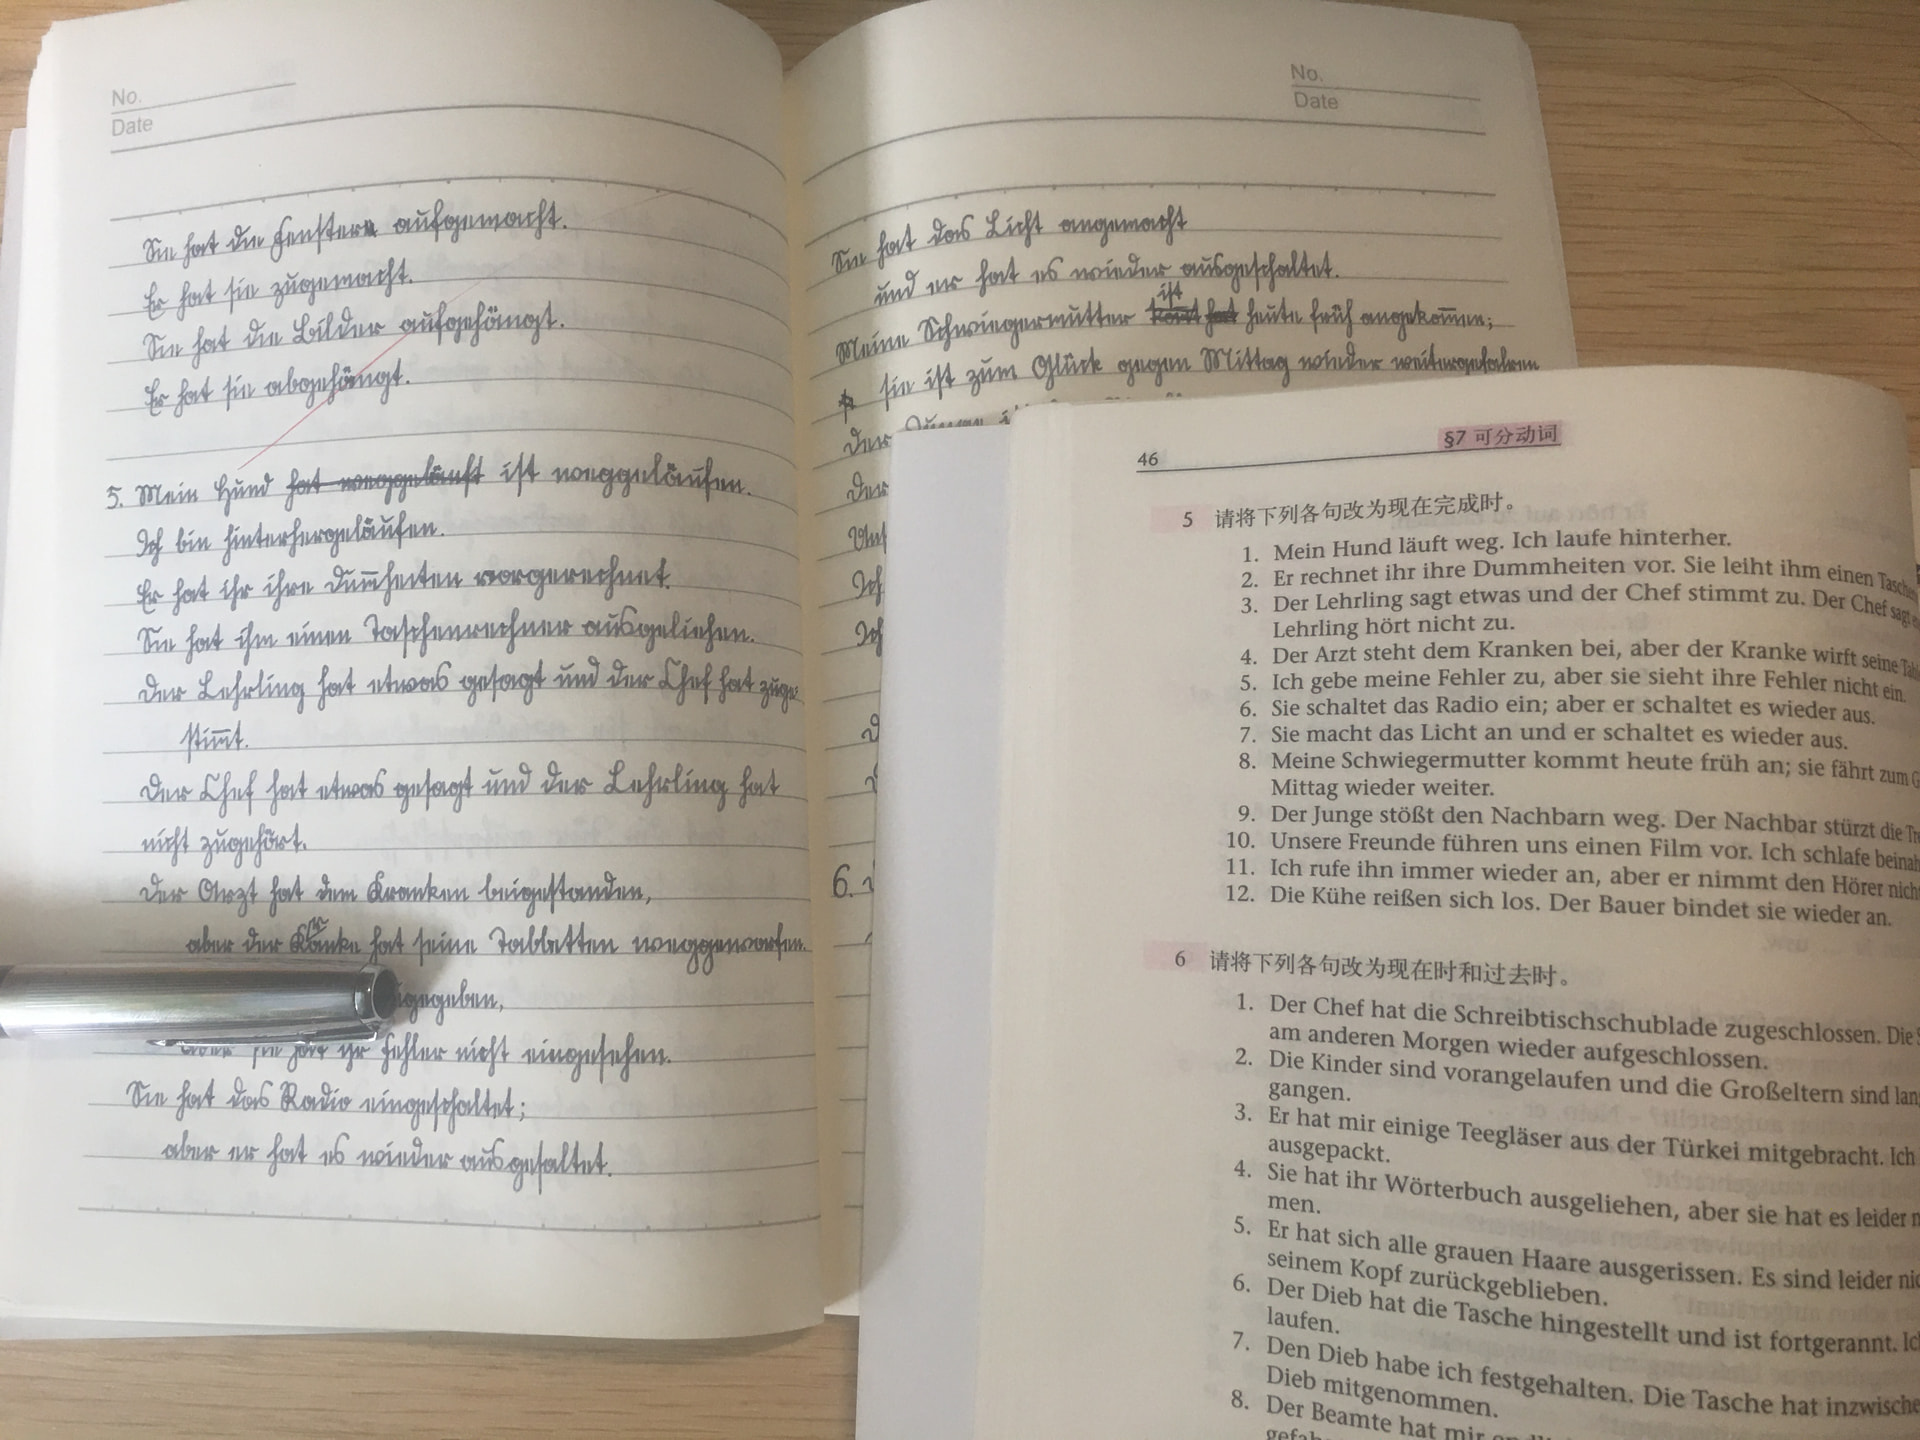 No.
Date
Sie hat die Fenster aufgemacht.
Er hat sie zugemacht.
Sie hat die Bilder aufgehängt.
Er hat sie abgehängt.
5. Mein Hund hat weggeläuft ist weggeläufen.
Ich bin hinterhergeläufen.
Er hat ihr ihre Dum̄heiten vorgerechnet.
Sie hat ihm einen Taschenrechner ausgeliehen.
Der Lehrling hat etwas gesagt und der Chef hat zuge-
stim̄t.
Der Chef hat etwas gesagt und der Lehrling hat
nicht zugehört.
Der Arzt hat dem Kranken beigestanden,
aber der Kranke hat seine Tabletten weggeworfen.
gegeben,
aber sie hat ihr Fehler nicht eingesehen.
Sie hat das Radio eingeschaltet;
aber er hat es wieder ausgesaltet.
No.
Date
Sie hat das Licht angemacht
und er hat es wieder ausgeschaltet.
Meine Schwiegermutter ist heute früh angekom̄en;
sie ist zum Glück gegen Mittag wieder weitergefahren
Der
Der
Uns
Ich
Ich
6.
46
§7 可分动词
5 请将下列各句改为现在完成时。
1. Mein Hund läuft weg. Ich laufe hinterher.
2. Er rechnet ihr ihre Dummheiten vor. Sie leiht ihm einen
3. Der Lehrling sagt etwas und der Chef stimmt zu. Der Chef sagt
Lehrling hört nicht zu.
4. Der Arzt steht dem Kranken bei, aber der Kranke wirft seine
5. Ich gebe meine Fehler zu, aber sie sieht ihre Fehler nicht ein.
6. Sie schaltet das Radio ein; aber er schaltet es wieder aus.
7. Sie macht das Licht an und er schaltet es wieder aus.
8. Meine Schwiegermutter kommt heute früh an; sie fährt zum
Mittag wieder weiter.
9. Der Junge stößt den Nachbarn weg. Der Nachbar stürzt die
10. Unsere Freunde führen uns einen Film vor. Ich schlafe beinah
11. Ich rufe ihn immer wieder an, aber er nimmt den Hörer nich
12. Die Kühe reißen sich los. Der Bauer bindet sie wieder an.
6 请将下列各句改为现在时和过去时。
1. Der Chef hat die Schreibtischschublade zugeschlossen. Die
am anderen Morgen wieder aufgeschlossen.
2. Die Kinder sind vorangelaufen und die Großeltern sind lan
gangen.
3. Er hat mir einige Teegläser aus der Türkei mitgebracht. Ich
ausgepackt.
4. Sie hat ihr Wörterbuch ausgeliehen, aber sie hat es leider
men.
5. Er hat sich alle grauen Haare ausgerissen. Es sind leider nic
seinem Kopf zurückgeblieben.
6. Der Dieb hat die Tasche hingestellt und ist fortgerannt. Ic
laufen.
7. Den Dieb habe ich festgehalten. Die Tasche hat inzwische
Dieb mitgenommen.
8. Der Beamte hat mir